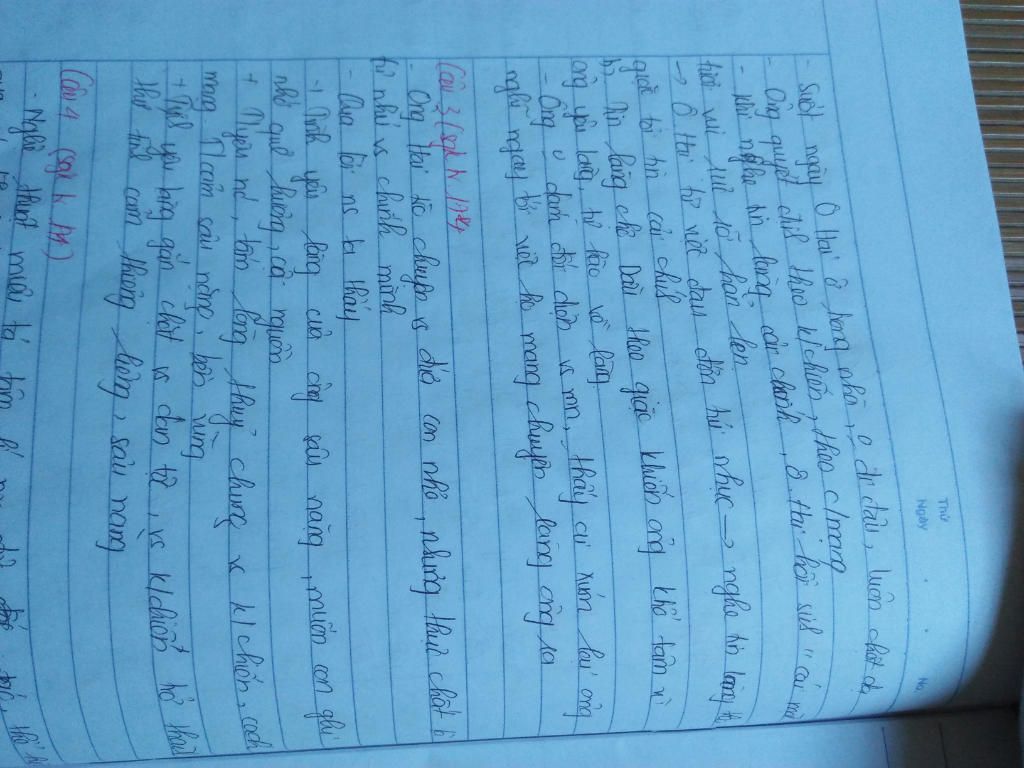 THỨ
NGÀY
No.
- Suốt ngày ô Hai ở trong nhà, o đi đâu, luôn chột dạ
- Ông quyết định theo k/chiến, theo c/mạng
- khi nghe tin làng cải chính, ô Hai hồi sinh "cái mặt
tươi vui rõ hẳn lên
→ Ô Hai từ việc đau đớn tủi nhục → nghe tin làng th
giặc tới tin cải chính
b, Tin làng chợ Dầu theo giặc khiến ông khổ tâm vì
ông yêu làng, tự hào về làng
- Ông o dám đối diện vs mn, thấy cứ xúm lại ông
nghĩ ngay tới việc họ mang chuyện làng ông ra
Câu 3 (sgk tr 174
- Ông Hai trò chuyện vs đứa con nhỏ, nhưng thực chất là
tự nhủ vs chính mình
- Qua lời ns ta thấy
+ Tình yêu làng của ông sâu nặng, muốn con ghi
nhớ quê hương, cả nguồn
+ Tuyên nó, tấm lòng thuỷ chung vs k/chiến, cách
mạng T.cảm sâu nặng, bền vững
+ Tình yêu làng gắn chặt vs đan tộc, vs k/chiến
thứ tình cảm thiêng liêng, sâu nặng
Câu 4 (sgk tr 174)
- Nghệ thuật miêu tả tâm lí